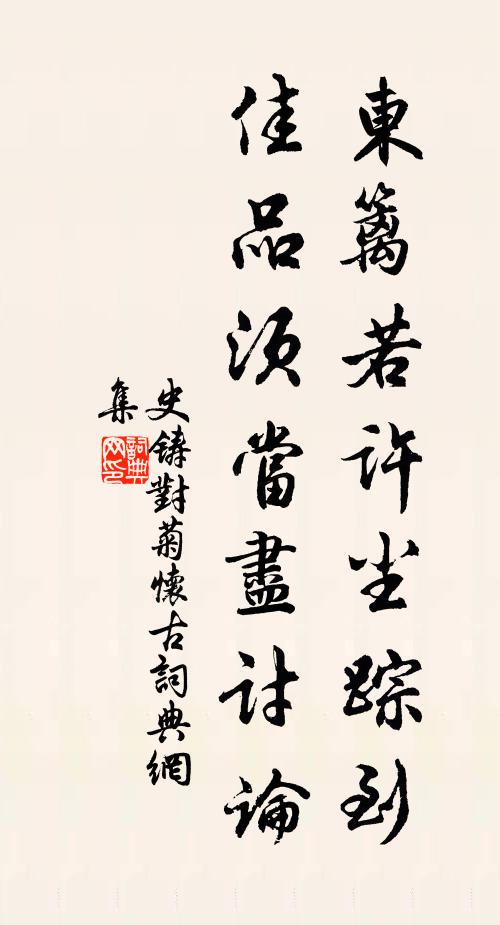 東籬若許尘踪到
佳品須當盡討論
史鑄對菊懷古詞典網
集
詞典网印